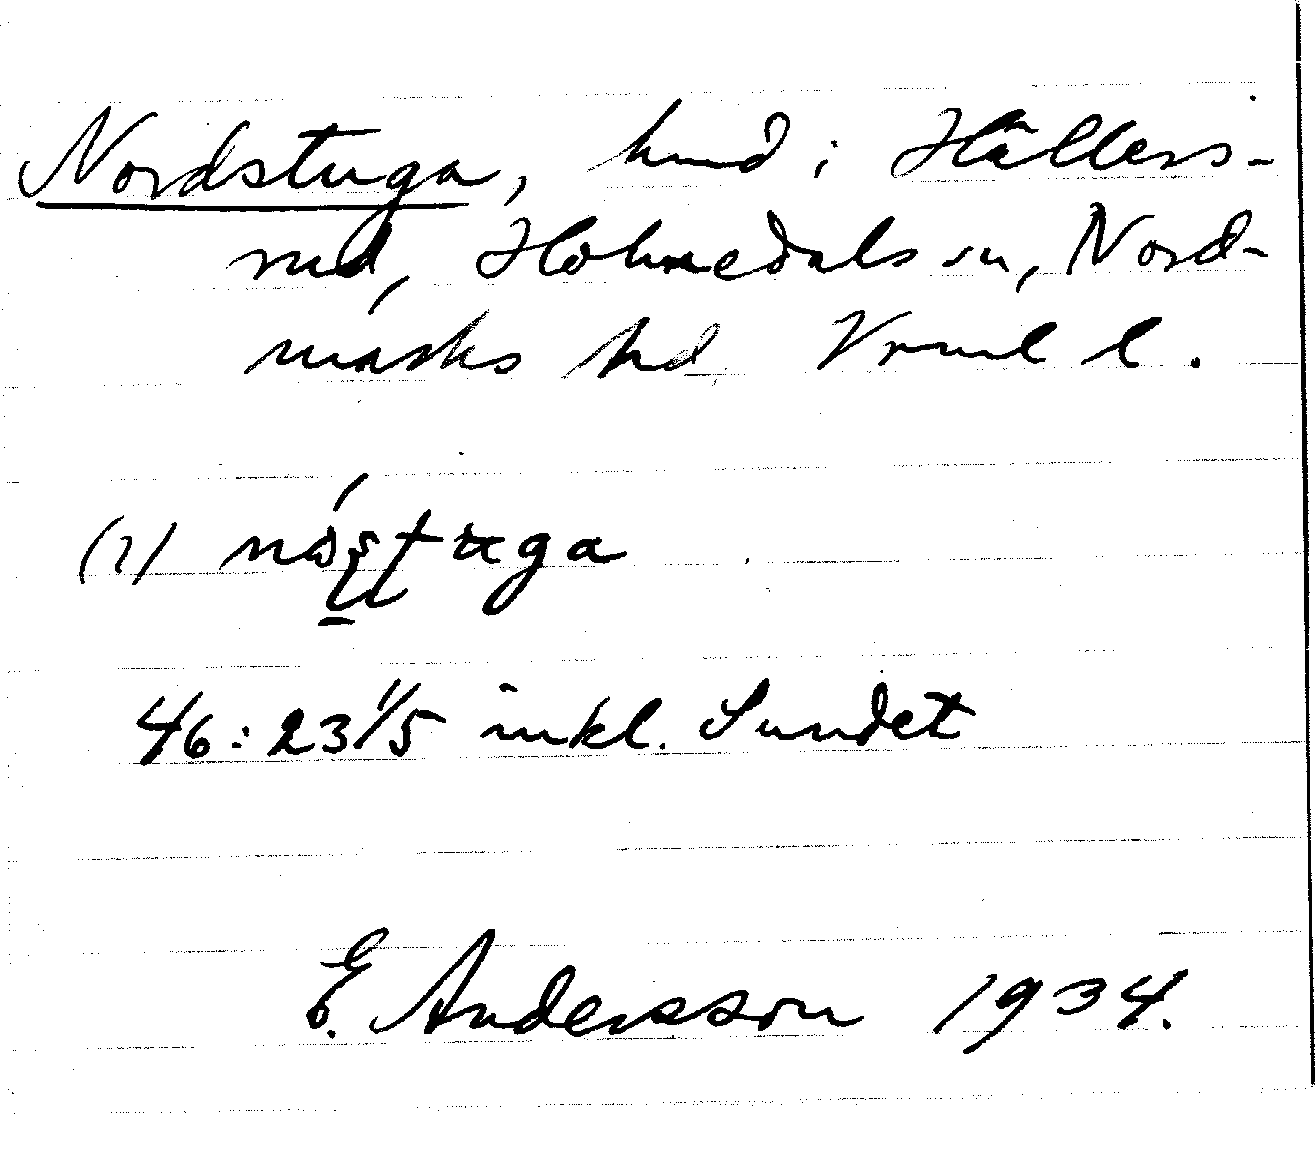 Nordstuga, hmd i Hällers-
rud, Holmedals sn, Nord-
marks hd Vrml l.
(1)
46:23 1/5 inkl. Sundet
E. Andersson 1934.